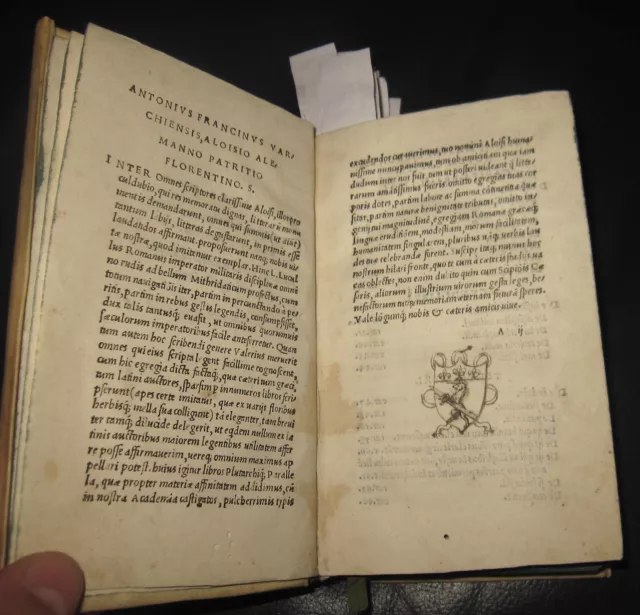 ANTONIVS FRANCINVS VAR-
CHIENSIS, ALOISIO ALE-
MANNO PATRITIO
FLORENTINO. S.
INTER Omnes scriptores clarissime Aloisi,
culdubio, qui res memoratu dignas, litterarū monu
mentis demandarunt, omnes qui summis (ut aiūt)
tantum labijs, litteras degustarunt, in primis esse
laudandos affirmant. proposuerunt nanq; nobis uir
tæ nostræ, quod imitemur exemplar. Hinc L. Lucul
lus Romanus imperator militaris disciplinæ omnē
no rudis ad bellum Mithridaticum profectus, cum
totum navigatiōis iter, partim in percunctando a pe
ritis, partim in rebus gestis legendis, consumpsisset,
dux talis tantusq; euasit, ut omnibus quorumuis
sæculorum imperatoribus facile anteferretur. Quan
tum autem hoc scribendi genere Valerius meruerit
omnes qui eius scripta legent facillime cognoscent,
cum hic egregia dicta factaq; quæ cæteri tum græci,
tum latini auctores, sparsim in innumeros libros scri
pserunt (apes certe imitatus, quæ ex uarijs floribus
herbisq; mella sua colligunt) ita eleganter, tam breui
ter tamq; dilucide delegerit, ut eqdem nullum ex la
tinis auctoribus maiorem legentibus utilitatem affer
re posse affirmauerim, uereq; omnium maximus ap
pellari potest. huius igitur libros Plutarchiq; Paralle
la, quæ propter materiæ affinitatem addidimus, cū
in nostra Academia castigatos, pulcherrimis typis
excudendos curauerimus, tuo nomini Aloisi huma
nissime nuncupauimus, tum ob amicitiam quæ iam
diudum inter nos fuit, tum ut posteri uideant q litte
rarum amantissimus fueris. omitto egregias tui cor
poris dotes, partim labore ac summa continentia quæ
sitas, partim naturæ benignitate tributas, omitto in
genij magnitudinē, egregiam Romanæ græcæq;
linguæ eruditionē, modestiam, morum facilitatem,
humanitatem singularem, pluribus nāq; uerbis lau
des tuæ celebrandæ forent. Suscipe itaq; munus hoc
nostrum hilari fronte, quo te tum a cæteris studijs ua
cas oblectes, non enim dubito quin cum Scipiōis Cæ
saris, aliorumq; illustrium uirorum gesta leges, be
nefactorum tuorum memoriam æternam fore speres.
Vale lōgumq; nobis & cæteris amicis uiue.
A ij